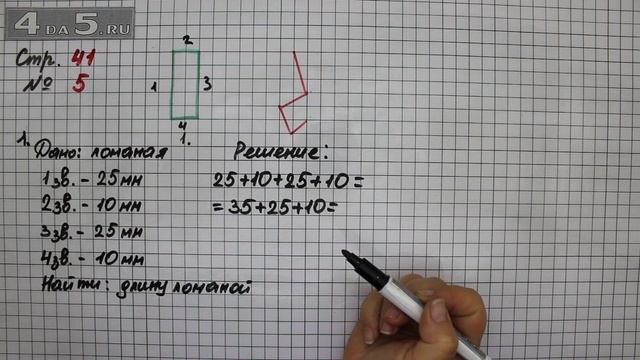 4 DA 5.RU
Стр. 41
№ 5
2
1 3
4
1.
1.
Дано: ломаная
1 зв. - 25 мм
2 зв. - 10 мм
3 зв. - 25 мм
4 зв. - 10 мм
Найти: длину ломаной
Решение:
25+10+25+10=
=35+25+10=